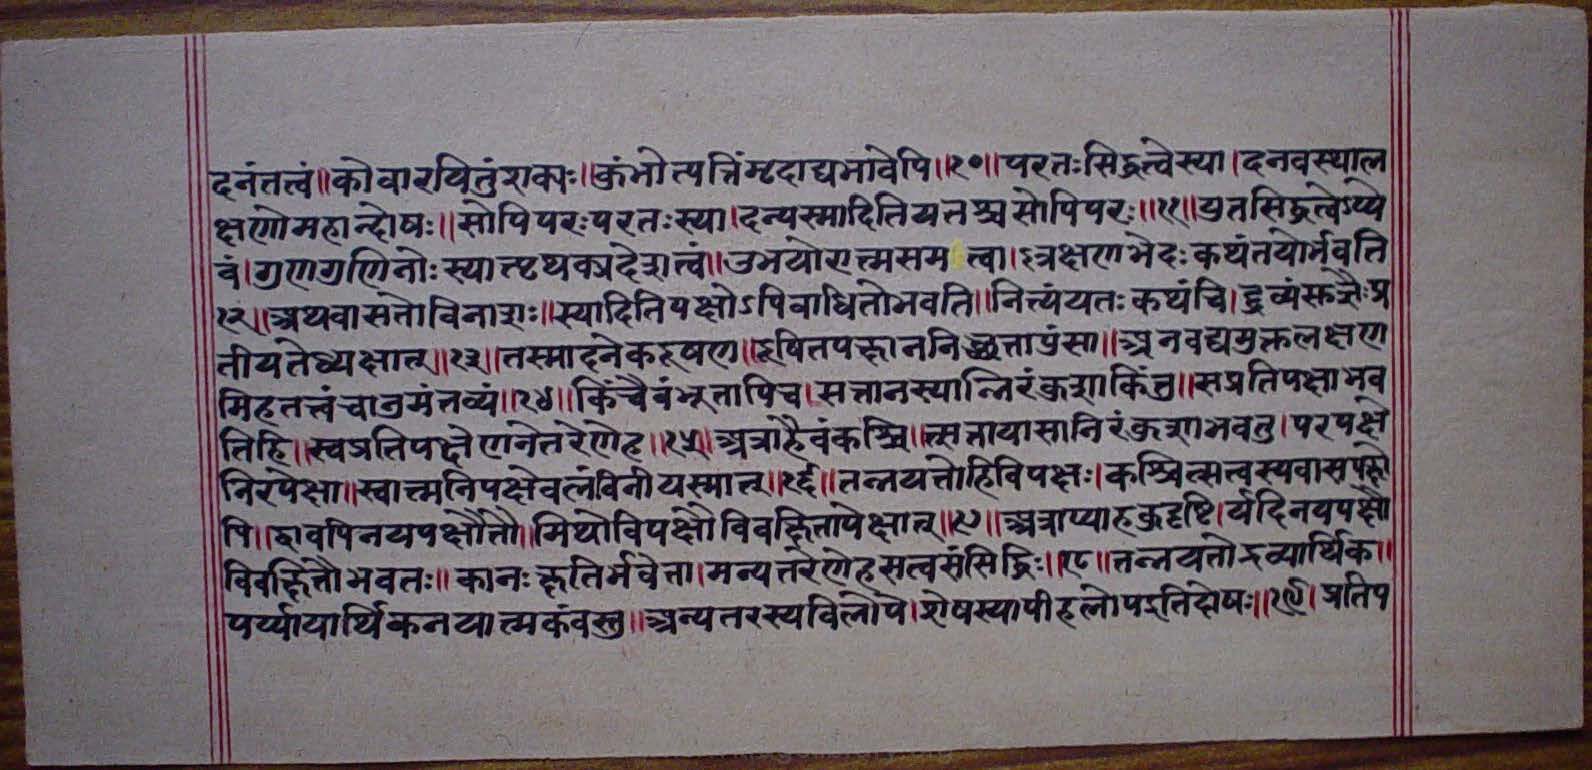 दनंतत्वं॥कोवारयितुंशक्यः॥कुंभोत्पत्तिंमृदाद्यभावेपि॥१०॥परतःसिद्धत्वेस्या।दनवस्थाल
क्षणोमहान्दोषः॥सोपिपरःपरतःस्या।दन्यस्मादितियतश्चसोपिपरः॥११॥युतसिद्धत्वेऽप्ये
वं।गुणगुणिनोःस्यात्पृथक्प्रदेशत्वं॥उभयोरात्मसमत्वा।ल्लक्षणभेदःकथंतयोर्भवति
१२॥अथवासतोविनाशः॥स्यादितिपक्षोऽपिबाधितोभवति॥नित्यंयतःकथंचि।द्द्रव्यंसुज्ञैःप्र
तीयतेध्यक्षात्॥१३॥तस्मादनेकदूषण॥दूषितपक्षाननिच्छत्तापुंसा॥अनवद्यमुक्तलक्षण
मिहतत्त्वंचानुमंतव्यं॥१४॥किंचैवंभूतापिच।सत्तानस्यान्निरंकुशाकिंतु॥सप्रतिपक्षाभव
तिहि॥स्वप्रतिपक्षेणनेतरेणेह॥१५॥अत्राहैवंकश्चि॥त्सत्तायासानिरंकुशाभवतु।परपक्षे
निरपेक्षा॥स्वात्मनिपक्षेवलंबिनीयस्मात्॥१६॥तन्नयतोहिविपक्षः।कश्चित्सत्वस्यवासपक्षो
पि॥द्वावपिनयपक्षौतौ॥मिथोविपक्षौविवक्षितापेक्षात्॥१७॥अत्राप्याहकुदृष्टि।र्यदिनयपक्षौ
विवक्षितौभवतः॥कानःक्षतिर्भवेता।मन्यतरेणेहसत्वसंसिद्धिः॥१८॥तन्नयतोद्रव्यार्थिक॥
पर्य्यायार्थिकनयात्मकंवस्तु॥अन्यतरस्यविलोपे।शेषस्यापीहलोपइतिदोषः॥१९।प्रतिप